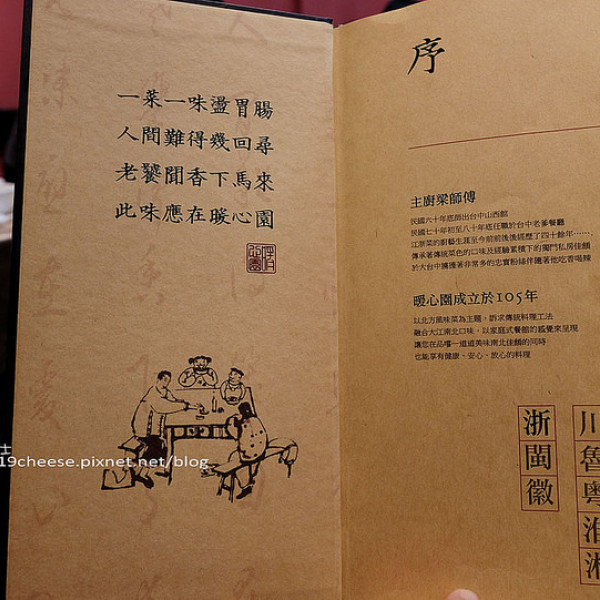 一菜一味盪胃腸
人間難得幾回尋
老饕聞香下馬來
此味應在暖心園
序
主廚梁師傅
民國六十年底師出台中山西館
民國七十年初至八十年底任職於台中老爹餐廳
江浙菜的廚藝生涯至今前前後後經歷了四十餘年……
傳承著傳統菜色的口味及經驗累積下的獨門私房佳餚
於大台中擁護著非常多的忠實粉絲伴隨著他吃香喝辣
暖心園成立於105年
以北方風味菜為主題，訴求傳統料理工法
融合大江南北口味，以家庭式餐館的感覺來呈現
讓您在品嚐一道道美味南北佳餚的同時
也能享有健康、安心、放心的料理
川魯粵淮湘
浙閩徽
士
19cheese.pixnet.net/blog